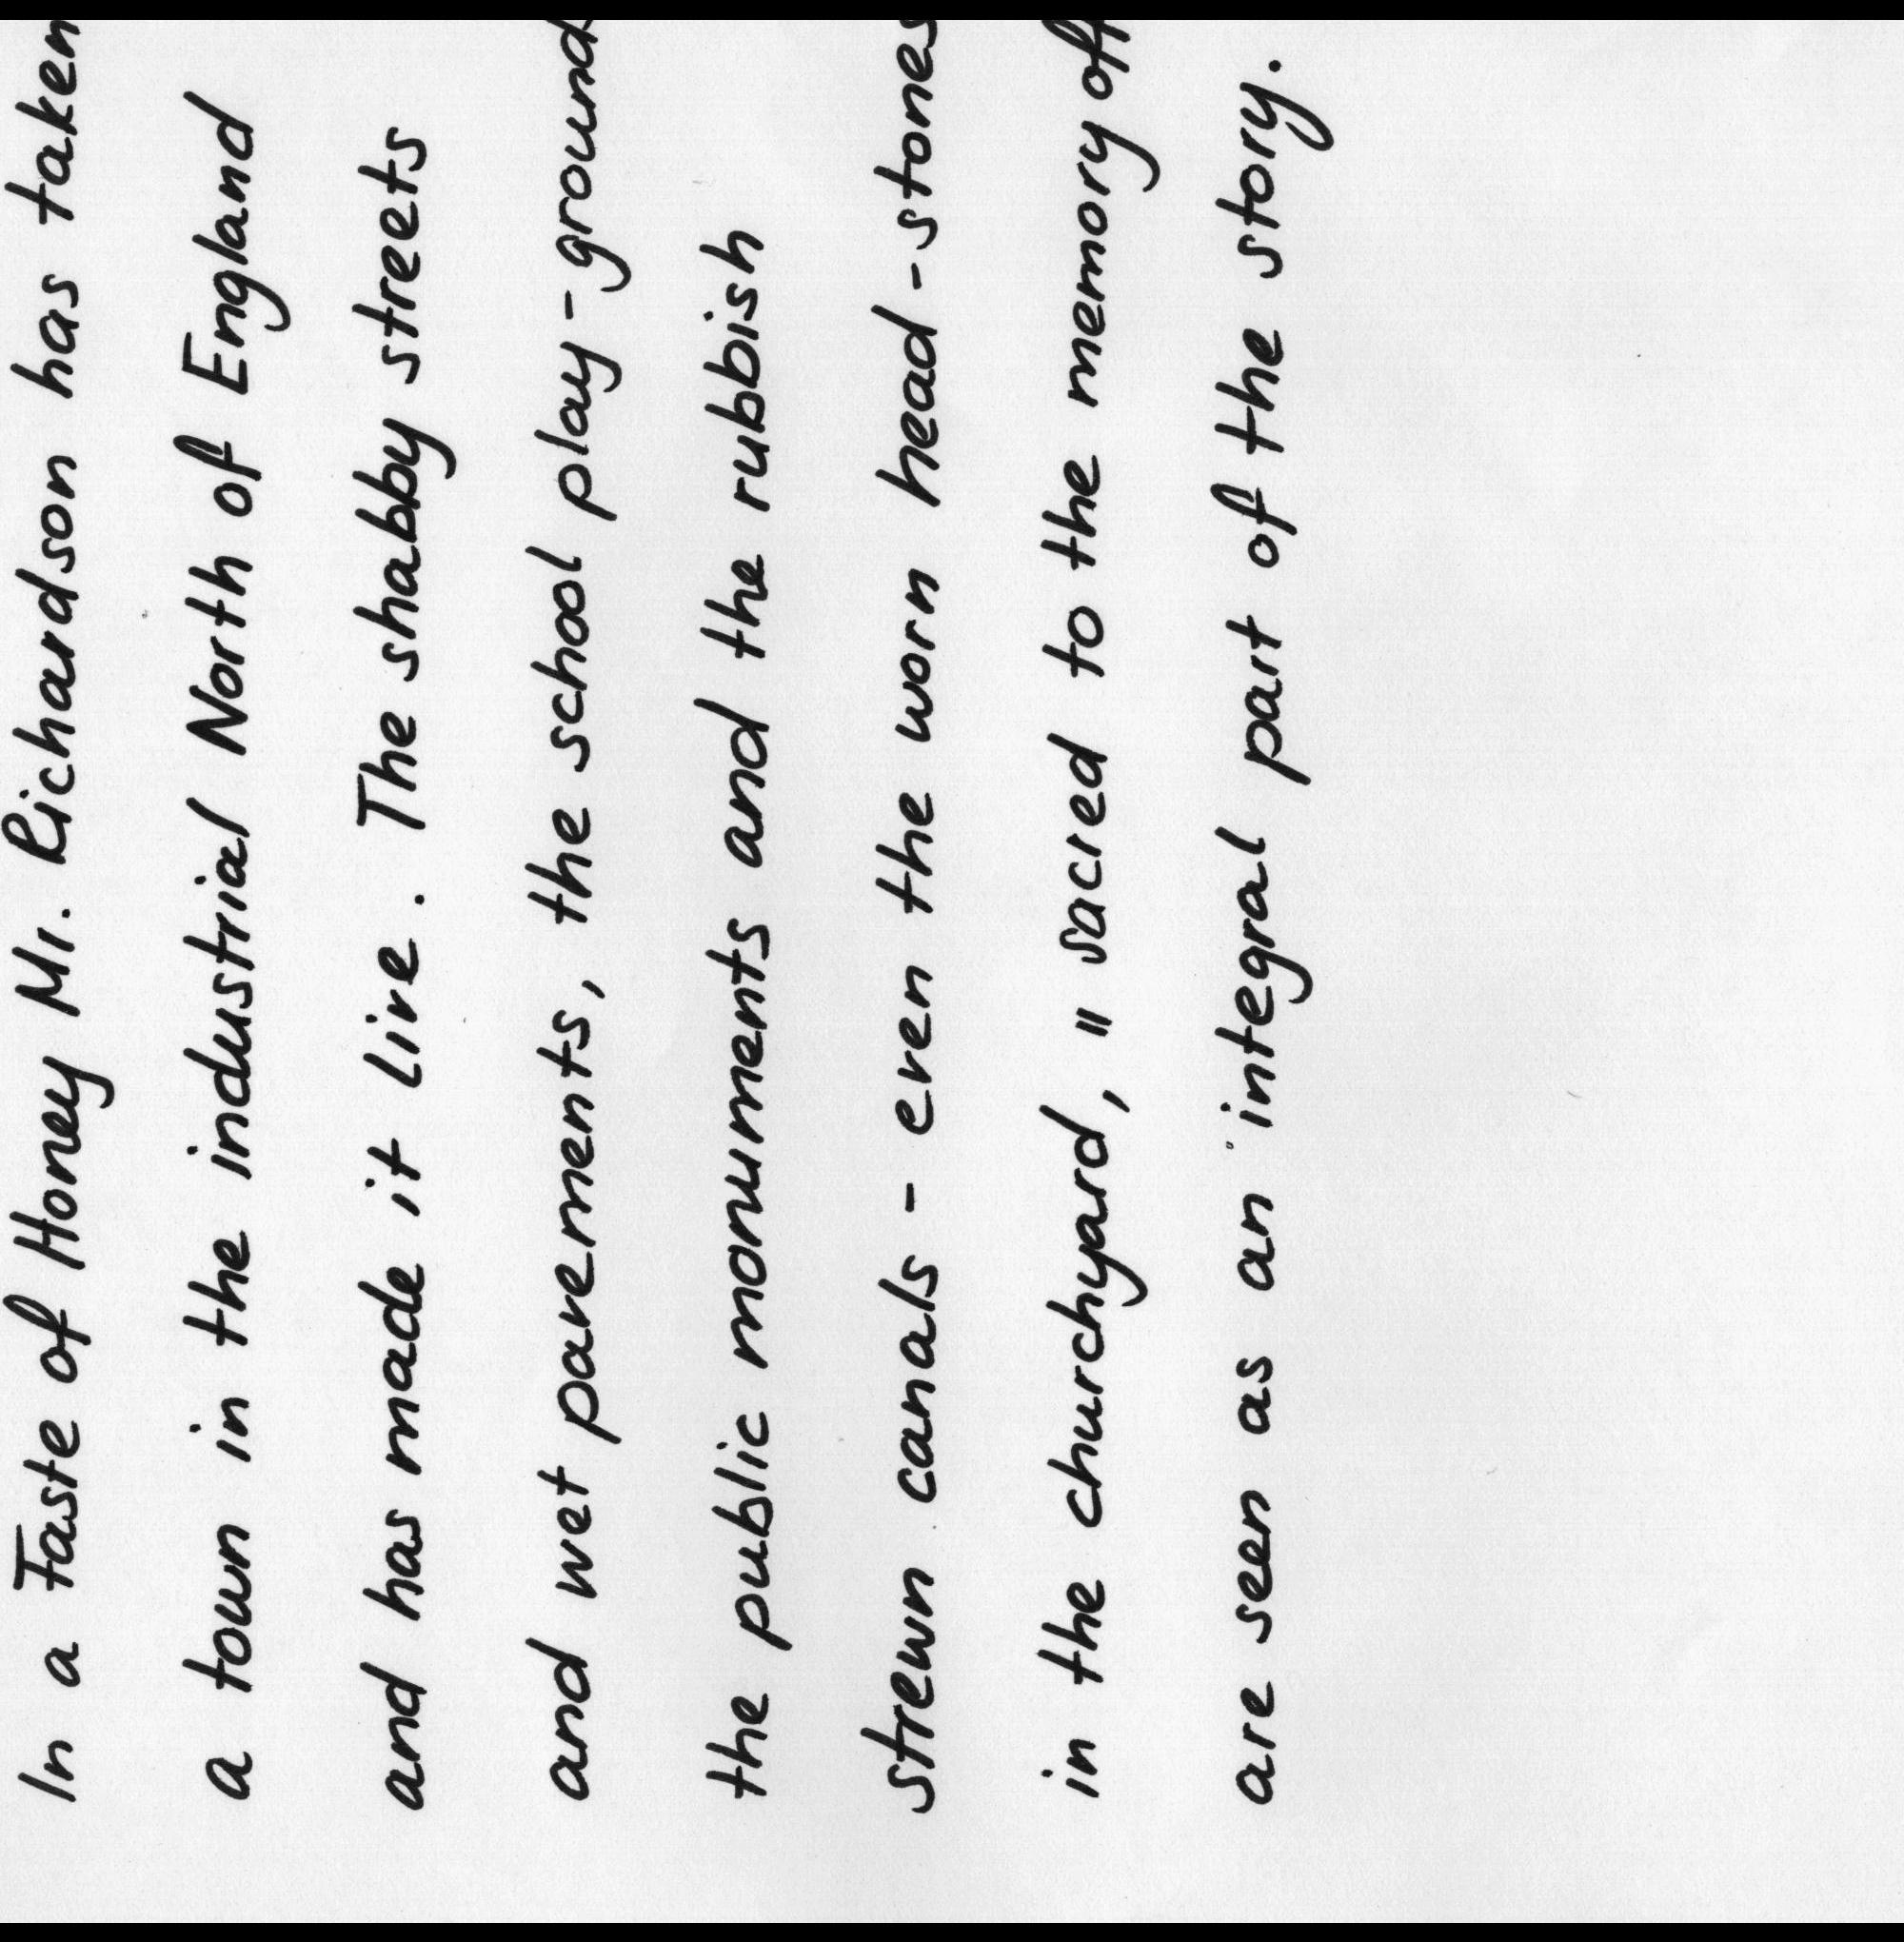 In a Taste of Honey Mr. Richardson has taken
a town in the industrial North of England
and has made it live. The shabby streets
and wet pavements, the school play-ground
the public monuments and the rubbish
strewn canals - even the worn head-stones
in the churchyard, " sacred to the memory of
are seen as an integral part of the story.